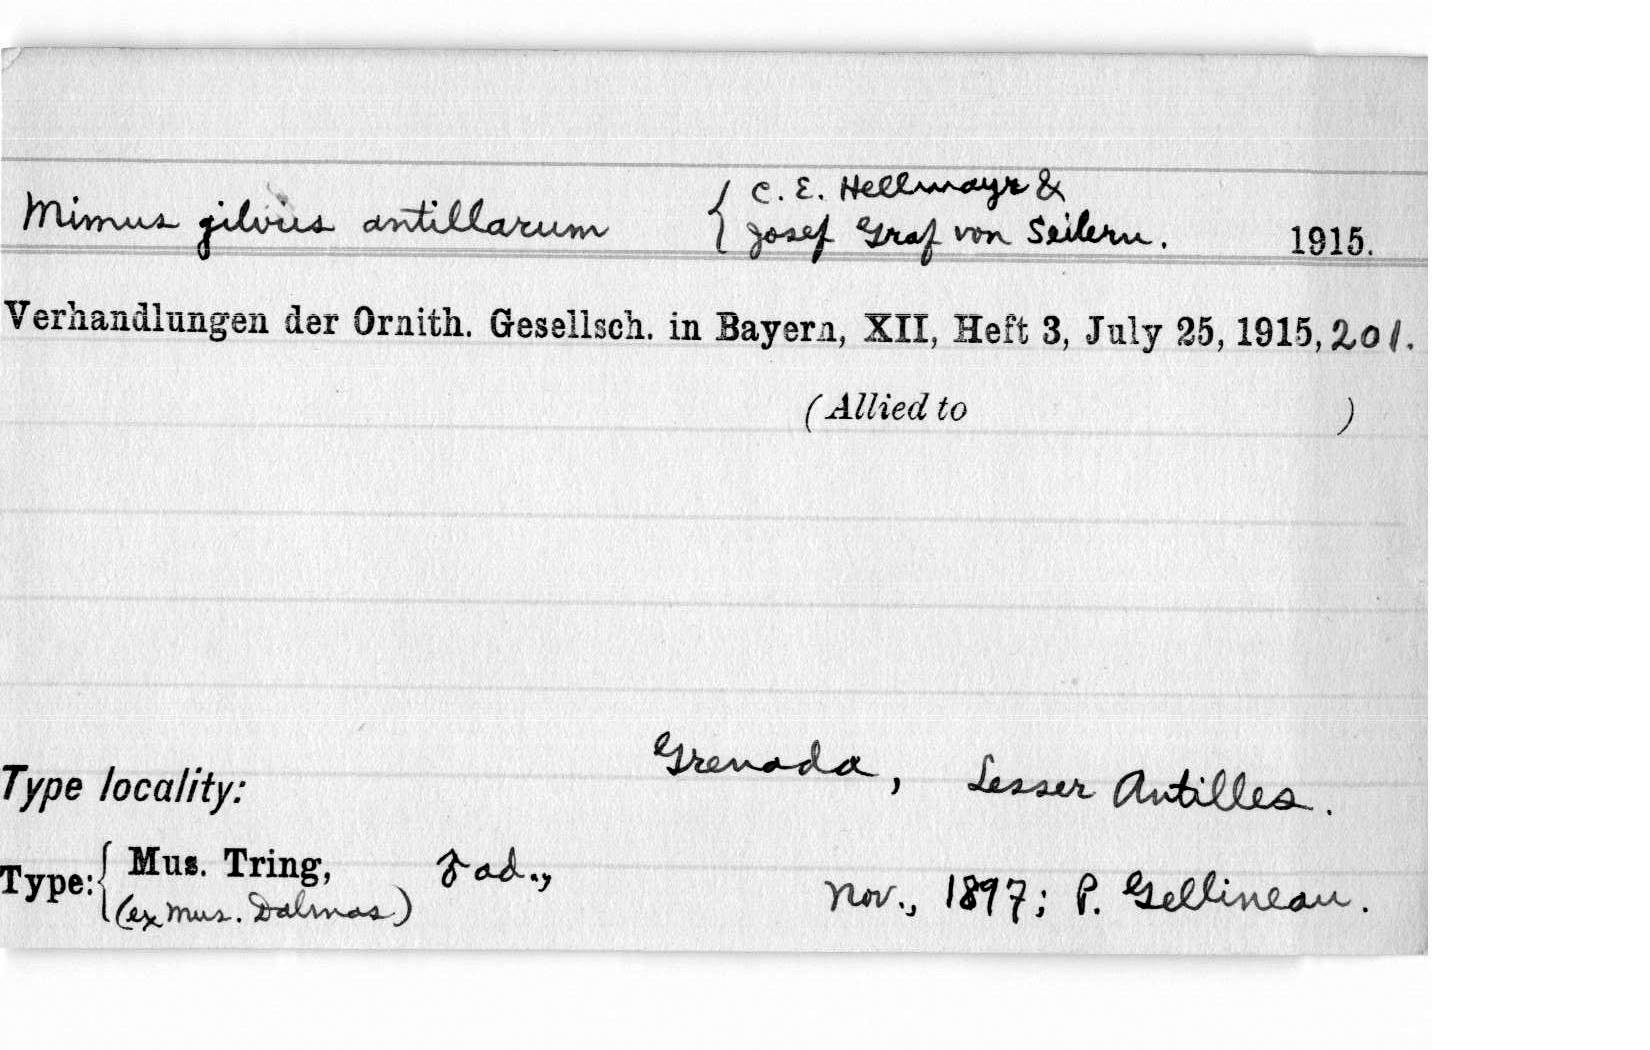 Mimus gilvus antillarum { C. E. Hellmayr &
Josef Graf von Seilern. 1915.
Verhandlungen der Ornith. Gesellsch. in Bayern, XII, Heft 3, July 25, 1915, 201.
(Allied to )
Type locality: Grenada, Lesser Antilles.
Type: { Mus. Tring, ad., Nov., 1897; P. Gellineau.
(ex Mus. Dalmas)